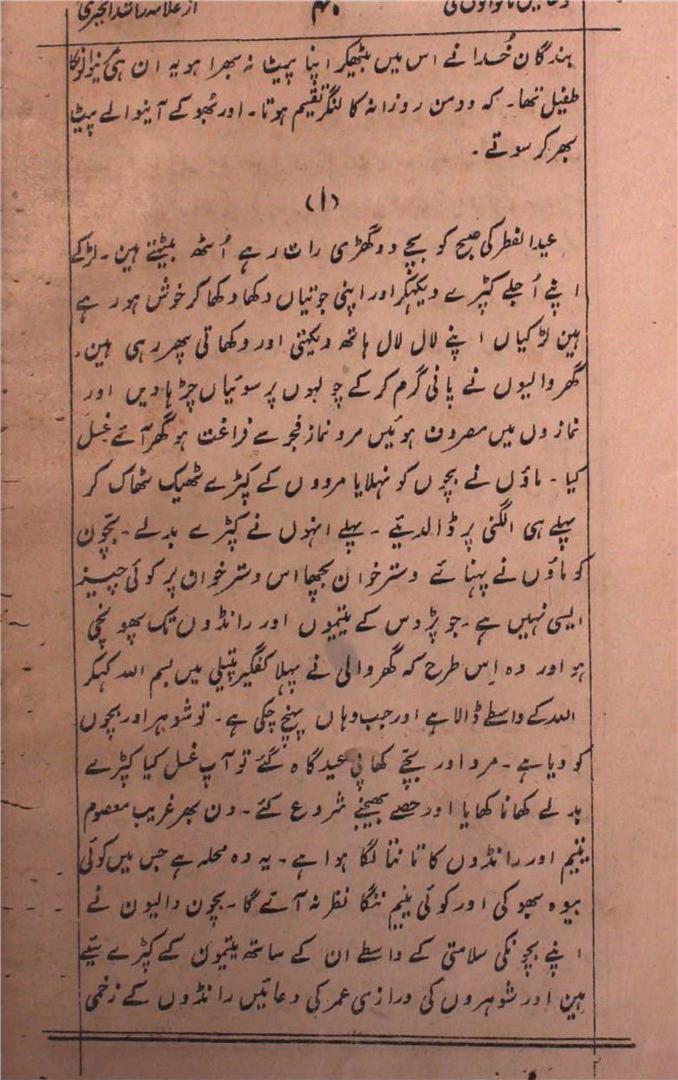 از علامہ راشد الخیری
بندگان خُدا نے اس میں بٹھیکر اپنا پیٹ نہ بھرا ہو یہ ان ہی
طفیل تھا۔ کہ دو من روزانہ کا لنگر تقسیم ہوتا۔ اور بُھوکے آینوالے پیٹ
بھر کر سوتے ۔
(۱)
عیدالفطر کی صبح کو بچے دو گھڑی رات رہے اُٹھ بیٹھے ہین ۔ لڑکے
اپنے اُجلے کپڑے دیکھکر اور اپنی جوتیاں دکھا دکھا کر خوش ہو رہے
ہین لڑکیاں اپنے لال لال ہاتھ دیکھتی اور دکھاتی پھر رہی ہین۔
گھر والیوں نے پانی گرم کر کے چولہوں پر سوئیاں چڑہا دیں اور
نمازوں میں مصروف ہوئیں مرد نماز فجر سے فراغت ہو گھر آئے غسل
کیا ۔ ماؤں نے بچوں کو نہلایا مردوں کے کپڑے ٹھیک ٹھاک کر
پہلے ہی الگنی پر ڈالدئیے ۔ پہلے انہوں نے کپڑے بدلے ۔ بچّون
کو ماؤں نے پہنائے دسترخوان بچھا اس دسترخوان پر کوئی چیز
ایسی نہیں ہے ۔ جو پڑوس کے یتیموں اور رانڈوں تک پہونچی
ہو اور وہ اِس طرح کہ گھر والی نے پہلا کفگیر پتیلی میں بسم اللہ کہکر
اللہ کے واسطے ڈالا ہے اور جب وہاں پہنچ چکی ہے ۔ تو شوہر اور بچوں
کو دیا ہے ۔ مرد اور بچّے کھا پی عیدگاہ گئے تو آپ غسل کیا کپڑے
بدلے کھانا کھایا اور حصے بھیجنے شروع کئے ۔ دن بھر غریب معصوم
یتیم اور رانڈوں کا تانتا لگا ہوا ہے ۔ یہ وہ محلہ ہے جس میں کوئی
بیوہ بھوکی اور کوئی یتیم ننگا نظر نہ آئے گا ۔ بچون والیون نے
اپنے بچونکی سلامتی کے واسطے ان کے ساتھ یتیمون کے کپڑے سیے
ہین اور شوہروں کی درازی عمر کی دعائیں رانڈوں کے زخمی
۲